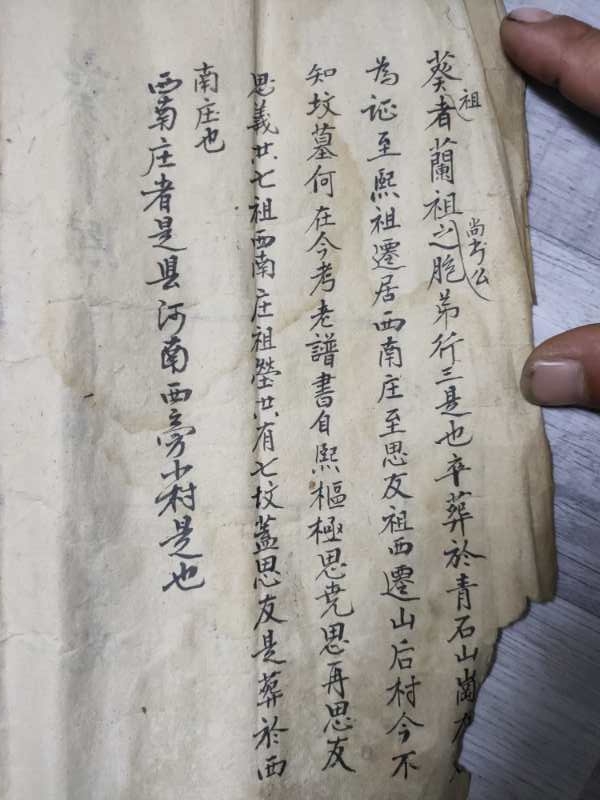 葵祖者蘭祖之尚书公胞弟行三是也卒葬於青石山崗
為证至熙祖遷居西南庄至思友祖西遷山后村今不
知坟墓何在今考老譜書自熙樞極思堯思再思友
思義共七祖西南庄祖塋共有七坟蓋思友是葬於西
南庄也
西南庄者是县河南西旁小村是也